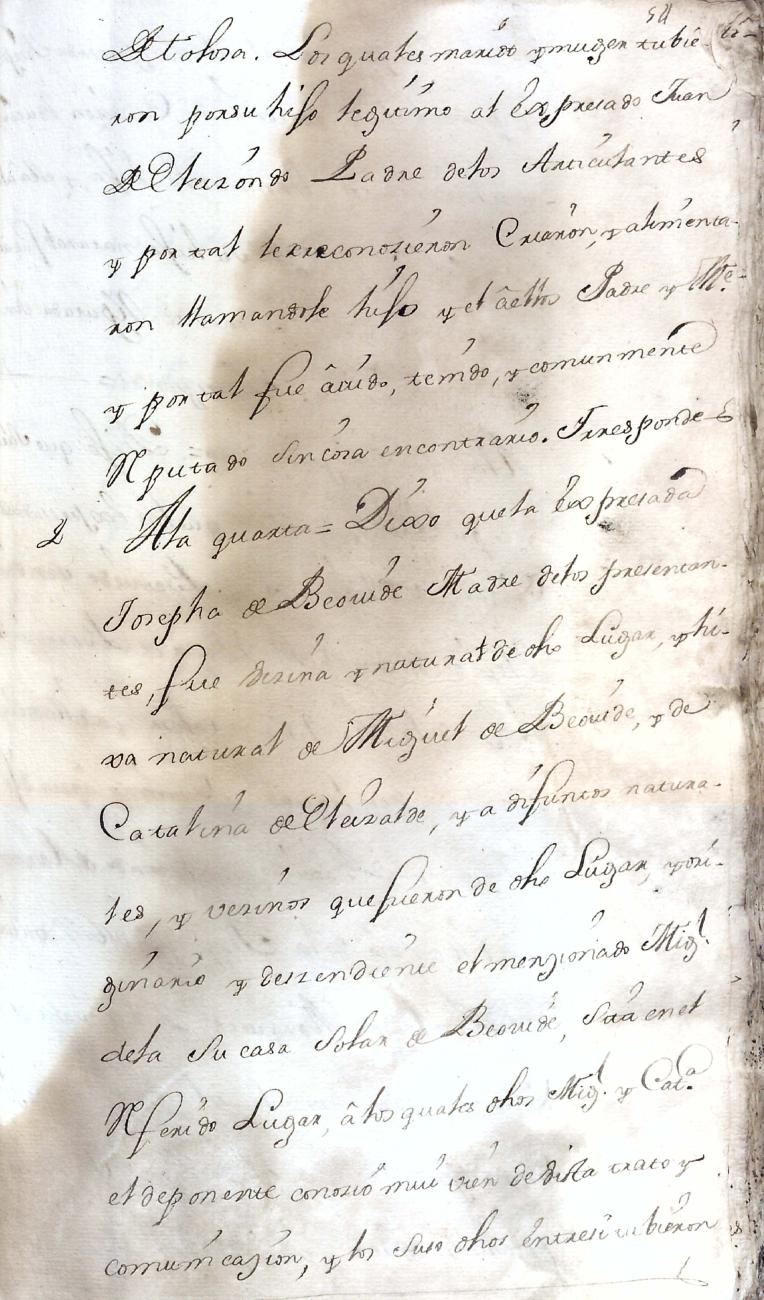 54
de tolosa. Los quales marido y muger tubie-
ron por su hijo legitimo al expresado Juan
de Elizondo Padre de los Articulantes
y por tal le reconozieron Criaron, y alimenta-
ron llamandole hijo y el â ellos Padre y Me.
y por tal fue âvido, tenido, y comunmente
Reputado sin cosa en contrario. Y responde
2 A la quarta = Dixo que la expresada
Josepha de Beovide Madre de los presentan-
tes, fue vezina y natural de dho Lugar, y hi-
xa natural de Miguel de Beovide, y de
Catalina de Elizalde, ya difuntos natura-
les, y vezinos que fueron de dho Lugar, y ori-
ginario y deszendiente el menzionado Migl.
de la su casa Solar de Beovide, Sita en el
Referido Lugar, â los quales dhos Migl. y Cata.
el deponente conozio mui vien de vista trato y
comunicazion, y los suso dhos entre si tubieron